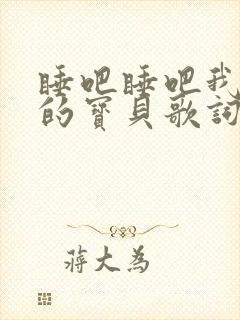 睡吧睡吧我
的寶貝歌詞
蔣大為